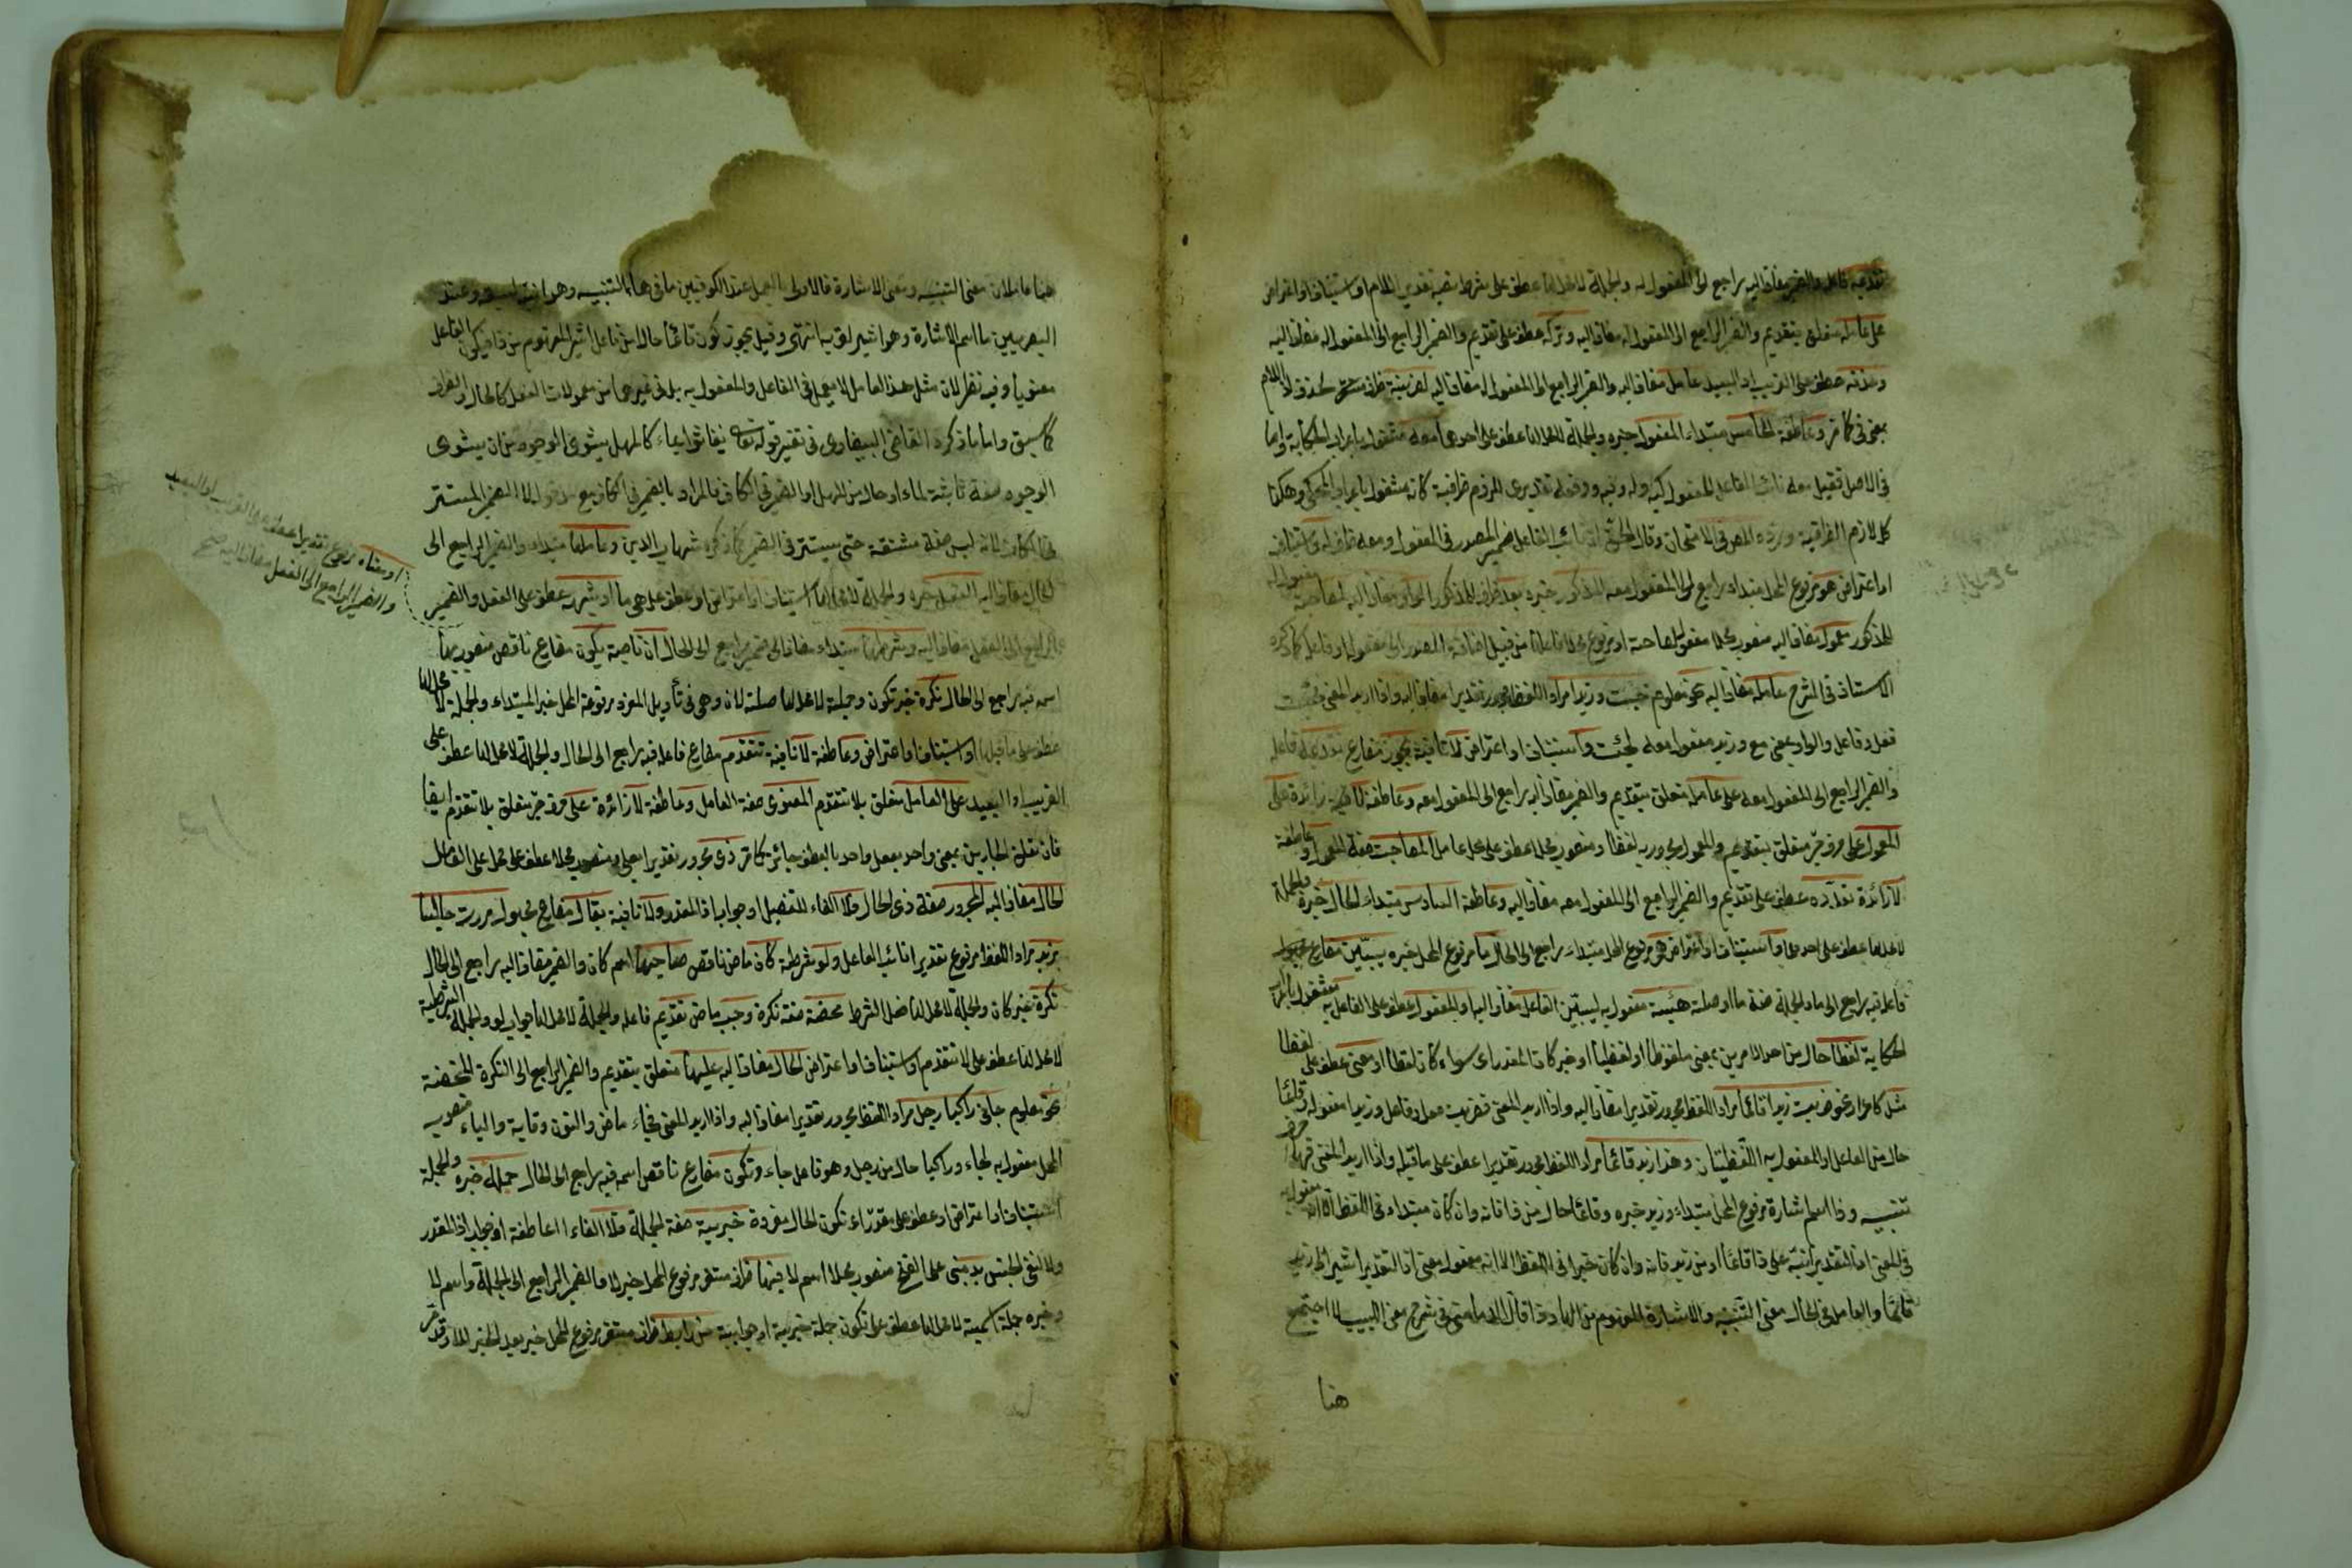 تقديمه فاعله والضمير مضاف اليه راجع الى المفعول له والجملة لا محل لها عطف على شرط نصبه تقدير اللام او استيناف او اعتراض
على عامله متعلق بتقديم والضمير الراجع الى المفعول له مضاف اليه وتركه عطف على تقديم والضمير الراجع الى المفعول له مضاف اليه
وحذفه عطف على القريب او البعيد عامل مضاف اليه والضمير الراجع الى المفعول له مضاف اليه لقرينة ظرف مستقر لحذف لا اللام
بمعنى في كما مر وعاطفة الخامس مبتداء المفعول خبره والجملة لا محل لها عطف على احدهما معه مشغول باعراب الحكاية واما
في الاصل فقيل معه نائب الفاعل للمفعول كبه وله وفيه ورفعه تقديرى للزوم ظرفية كان مشغول باعراب المحكى وهكذا
كل لازم الظرفية ورده المص في الامتحان وقال الحق ان نائب الفاعل ضمير المصدر في المفعول ومعه ظرف له واستيناف
او اعتراض هو مرفوع المحل مبتداء راجع الى المفعول معه المذكور خبره بعد ظرف للمذكور الواو مضاف اليه لمصاحبة
للمذكور معمول مضاف اليه منصوب محلا مفعول لمصاحبة او مرفوع محلا فاعلها من قبيل اضافة المصدر الى مفعوله او فاعله كما ذكره
الاستاذ في الشرح عامله مضاف اليه نحو معلوم جئت وزيدا مراد اللفظ مجرور تقديرا مضاف اليه واذا اريد المعنى فجئت
فعل وفاعل والواو بمعنى مع وزيد مفعول معه لجئت واستيناف او اعتراض لا نافية يجوز مضارع تقديمه فاعله
والضمير الراجع الى المفعول معه على عامله متعلق بتقديم والضمير مضاف اليه راجع الى المفعول معه وعاطفة لا زائدة على
المعمول على حرف جر متعلق بتقديم والمعمول مجرور به لفظا ومنصوب محلا عطف على محل عامل المصاحب صفة المعمول وعاطفة
لا زائدة تعدده عطف على تقديم والضمير الراجع الى المفعول معه مضاف اليه وعاطفة السادس مبتداء الحال خبره والجملة
لا محل لها عطف على احدهما واستيناف او اعتراض هو مرفوع المحل مبتداء راجع الى الحال ما مرفوع المحل خبره يبين مضارع
فاعله فيه راجع الى ما والجملة صفة ما او صلته هيئة مفعول به ليبين الفاعل مضاف اليه او المفعول عطف على الفاعل به مشغول باعراب
الحكاية لفظا حال من احد الامرين بمعنى ملفوظا او لفظيا او خبر كان المقدر اى سواء كان لفظا او معنى عطف على لفظا
مثل كما مرارا نحو ضربت زيدا قائما مراد اللفظ مجرور تقديرا مضاف اليه واذا اريد المعنى فضربت فعل وفاعل وزيدا مفعوله وقائما
حال من الفاعل او المفعول به اللفظيان وهذا زيد قائما مراد اللفظ مجرور تقديرا عطف على ما قبله واذا اريد المعنى فها حرف
تنبيه وذا اسم اشارة مرفوع المحل مبتداء وزيد خبره وقائما حال من ذا فانه وان كان مبتداء في اللفظ الا انه مفعول به
في المعنى اذ التقدير انبه على ذا قائما او من زيد فانه وان كان خبرا في اللفظ الا انه مفعول معنى اذ التقدير اشير الى زيد
قائما والعامل في الحال معنى التنبيه والاشارة المفهوم من الهاء وذا قال الدماميني في شرح مغنى اللبيب لما اجتمع
هنا
هنا عاملان معنى التنبيه ومعنى الاشارة فالاولى بالعمل عند الكوفيين ما في هاء التنبيه وهو انبه لسبقه وعند
البصريين ما اسم الاشارة وهو اشير لقربه انتهى وقيل يجوز كون قائما حالا من فاعل اشير المفهوم من ذا فيكون الفاعل
معنويا وفيه نظر لان مثل هذا العامل لا يعمل في الفاعل والمفعول به بل في غيرهما من معمولات الفعل كالحال والظرف
كما سبق واما ما ذكره القاضى البيضاوى في تفسير قوله تعالى يغاثوا بماء كالمهل يشوى الوجوه من ان يشوى
الوجوه صفة ثانية لماء او حال من المهل او الضمير في الكاف فالمراد بالضمير في الكاف لا الضمير المستتر
في الكاف لانه ليس صفة مشتقة حتى يستتر فيه الضمير كما ذكره شهاب الدين وعاملها مبتداء والضمير الراجع الى
الحال مضاف اليه الفعل خبره والجملة لا محل لها استيناف او اعتراض او عطف على هي ما او شبهه عطف على الفعل والضمير
الراجع الى الفعل مضاف اليه وشرطها مبتداء مضاف الى ضمير راجع الى الحال ان ناصبة يكون مضارع ناقص منصوب بها
اسمه فيه راجع الى الحال نكرة خبر تكون وجملته لا محل لها صلة لان وهى في تأويل المفرد مرفوعة المحل خبر المبتداء والجملة لا محل لها
عطف على ما قبلها او استيناف او اعتراض وعاطفة لا نافية تتقدم مضارع فاعله فيه راجع الى الحال والجملة لا محل لها عطف على
القريب او البعيد على العامل متعلق بلا تتقدم المعنوى صفة العامل وعاطفة لا زائدة على حرف جر متعلق بلا تتقدم ايضا
فان تعلق الجارين بمعنى واحد بفعل واحد بالعطف جائز كما مر ذى مجرور تقديرا بعلى ومنصوب محلا عطف على محل على العامل
الحال مضاف اليه المجرور صفة ذى الحال فلا الفاء للتفصيل او جواب اذا المقدر ولا نافية يقال مضارع مجهول مررت جالسا
بزيد مراد اللفظ مرفوع تقديرا نائب الفاعل ولو شرطية كان ماض ناقص صاحبها اسم كان والضمير مضاف اليه راجع الى الحال
نكرة خبر كان والجملة لا محل لها فعل الشرط محضة صفة نكرة وجب ماض تقديم فاعله والجملة لا محل لها جواب لو والجملة الشرطية
لا محل لها عطف على لا تتقدم او استيناف او اعتراض الحال مضاف اليه عليها متعلق بتقديم والضمير الراجع الى النكرة المحضة
نحو معلوم جاءنى راكبا رجل مراد اللفظ مجرور تقديرا مضاف اليه واذا اريد المعنى فجاء ماض والنون وقاية والياء منصوب
المحل مفعول به لجاء وراكبا حال من رجل وهو فاعل جاء وتكون مضارع ناقص اسمه فيه راجع الى الحال جملة خبره والجملة
استيناف او اعتراض او عطف على مقدر اى تكون الحال مفردة خبرية صفة لجملة فلا الفاء عاطفة او جواب اذا المقدر
ولا لنفى الجنس بد مبنى على الفتح منصوب محلا اسم لا فيها ظرف مستقر مرفوع المحل خبر لا والضمير الراجع الى الجملة واسم لا
وخبره جملة اسمية لا محل لها عطف على تكون جملة خبرية او جوابية من رابط ظرف مستقر مرفوع المحل خبر بعد الخبر للا وقد مر
او معناه مرفوع تقديرا عطف على القريب او البعيد
والضمير الراجع الى الفعل مضاف اليه صح